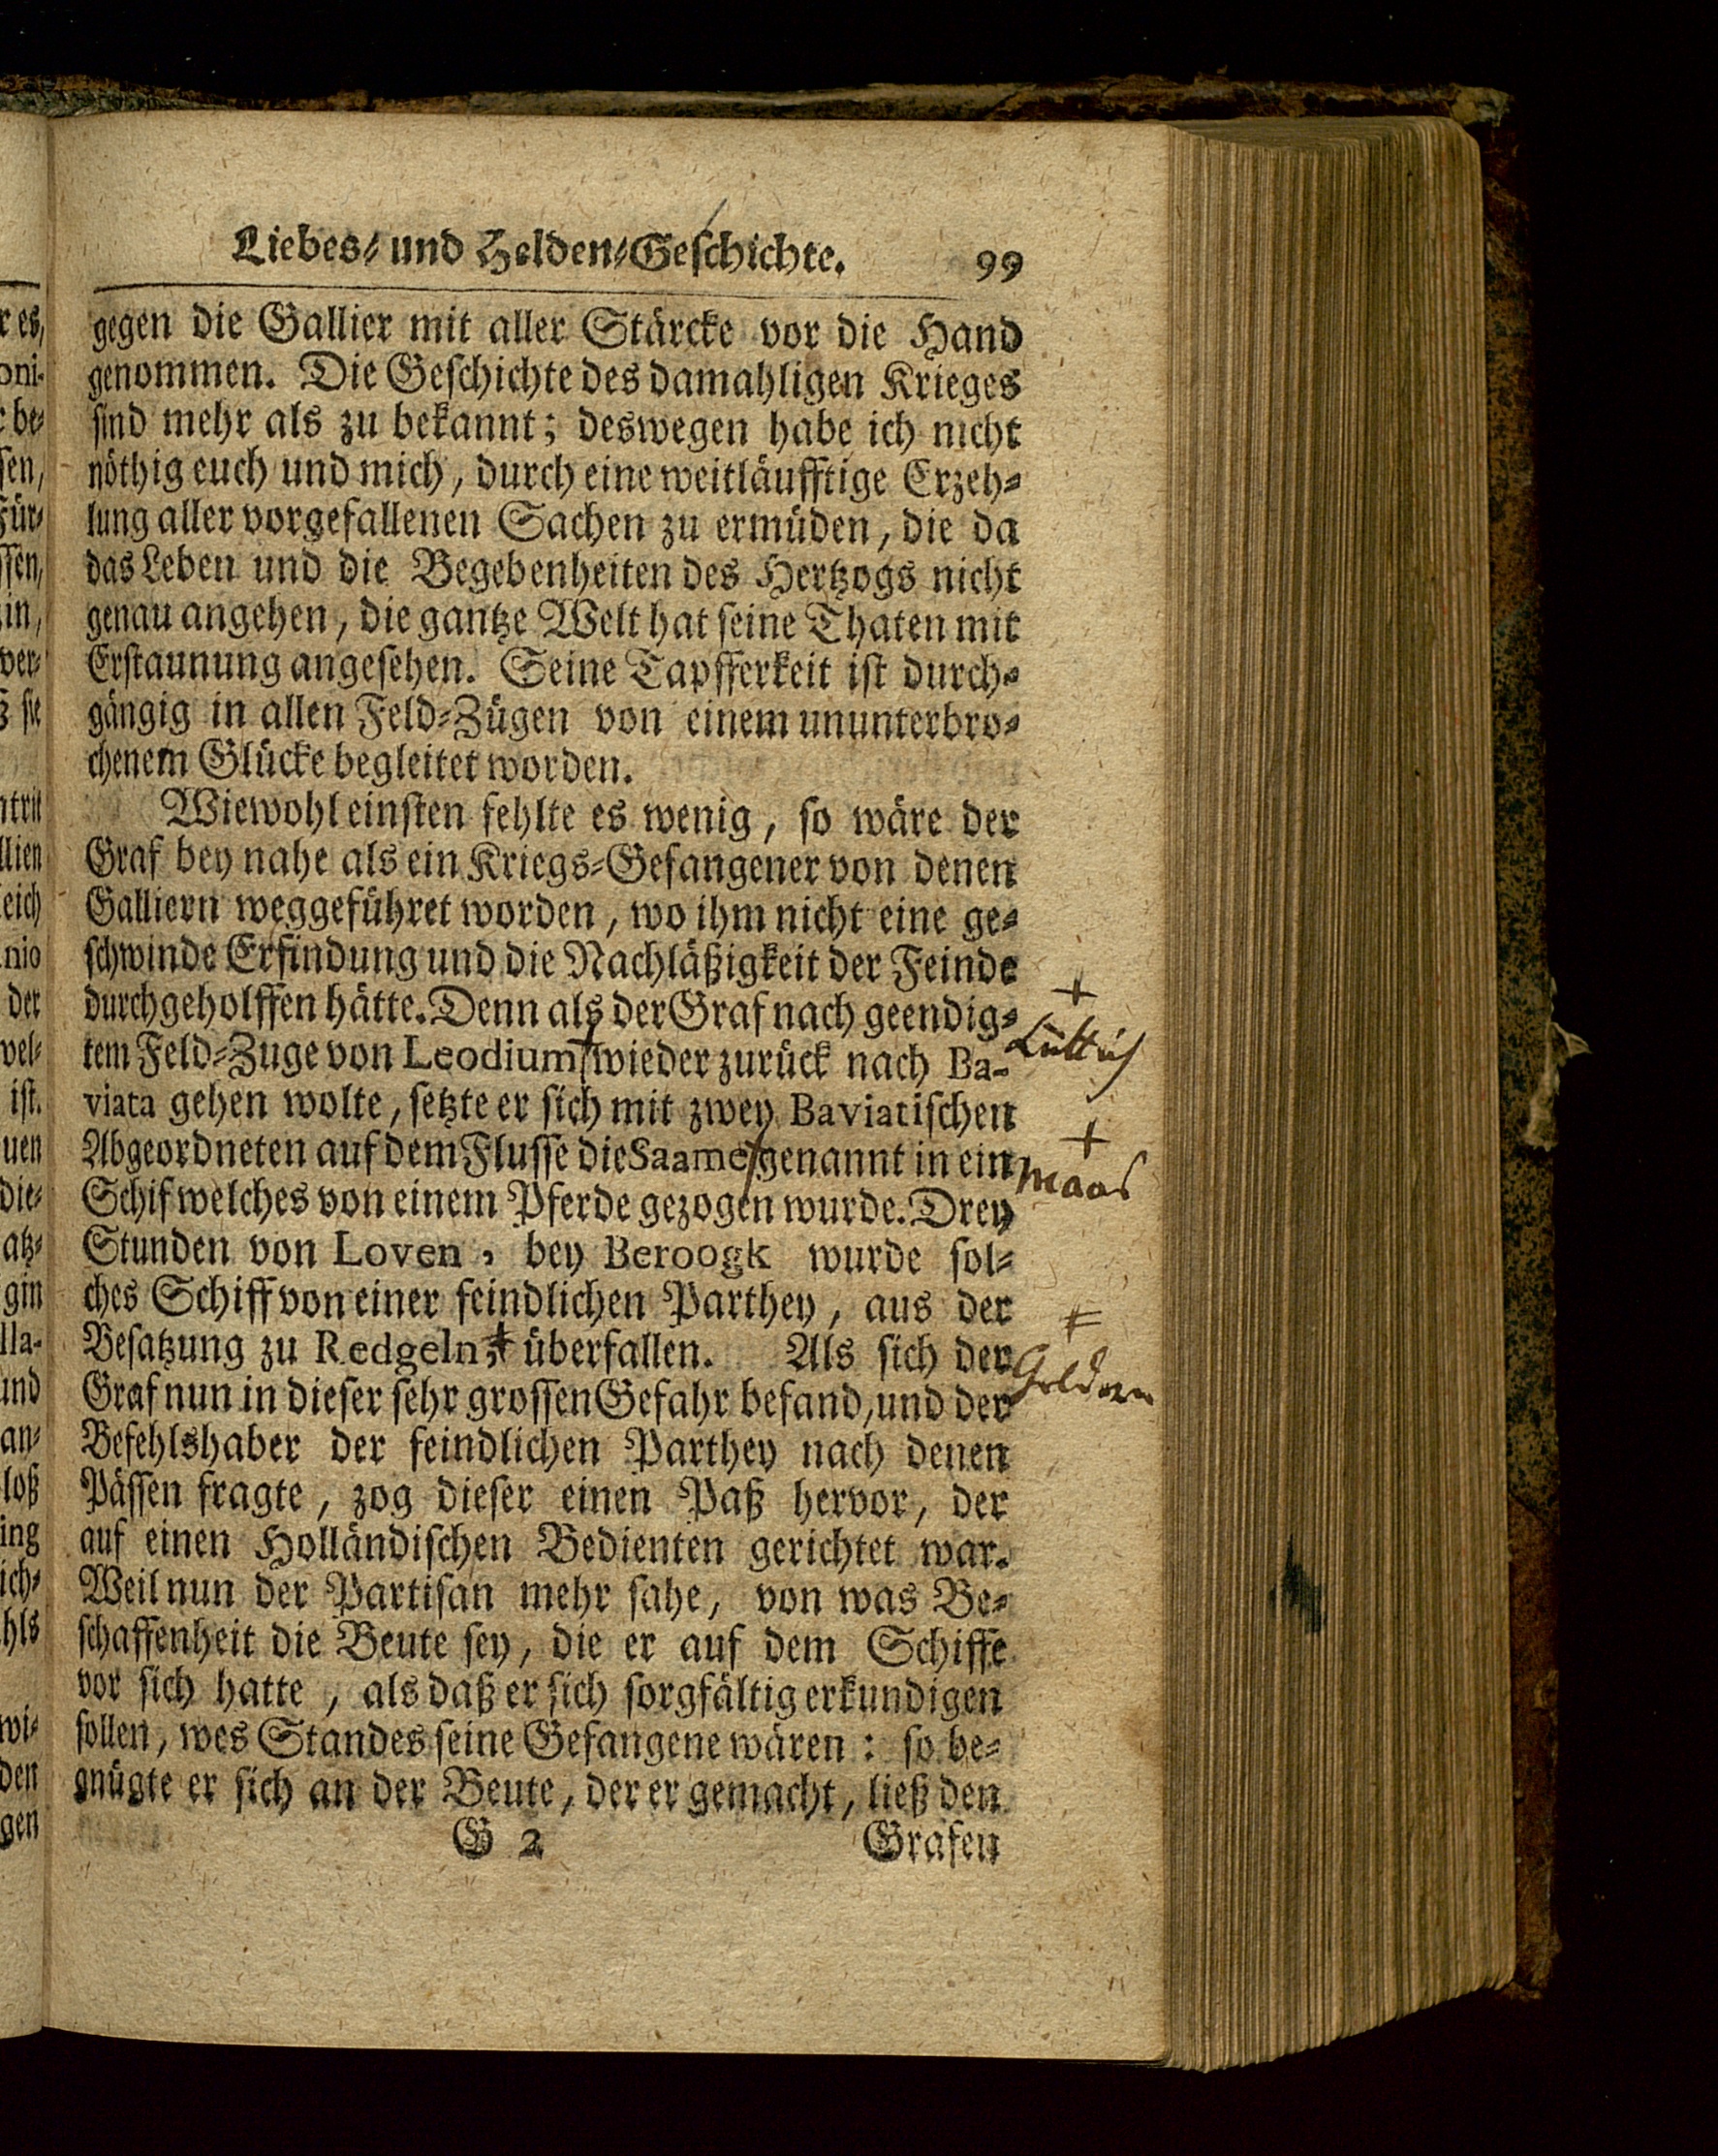 Liebes- und Helden-Geschichte. 99
gegen die Gallier mit aller Stärcke vor die Hand
genommen. Die Geschichte des damahligen Krieges
sind mehr als zu bekannt; deswegen habe ich nicht
nöthig euch und mich, durch eine weitläufftige Erzeh-
lung aller vorgefallenen Sachen zu ermüden, die da
das Leben und die Begebenheiten des Hertzogs nicht
genau angehen, die gantze Welt hat seine Thaten mit
Erstaunung angesehen. Seine Tapfferkeit ist durch-
gängig in allen Feld-Zügen von einem ununterbro-
chenem Glücke begleitet worden.
Wiewohl einsten fehlte es wenig, so wäre der
Graf bey nahe als ein Kriegs-Gefangener von denen
Galliern weggeführet worden, wo ihm nicht eine ge-
schwinde Erfindung und die Nachläßigkeit der Feinde
durchgeholffen hätte. Denn als der Graf nach geendig-
tem Feld-Zuge von Leodium + wieder zurück nach Ba-
+ Lüttich
viata gehen wolte, setzte er sich mit zwey Baviatischen
Abgeordneten auf dem Flusse die Saame + genannt in ein
+ Maas
Schif welches von einem Pferde gezogen wurde. Drey
Stunden von Loven, bey Beroogk wurde sol-
ches Schiff von einer feindlichen Parthey, aus der
Besatzung zu Redgeln, ǂ überfallen. Als sich der
ǂ Geldern
Graf nun in dieser sehr grossen Gefahr befand, und der
Befehlshaber der feindlichen Parthey nach denen
Pässen fragte, zog dieser einen Paß hervor, der
auf einen Holländischen Bedienten gerichtet war.
Weil nun der Partisan mehr sahe, von was Be-
schaffenheit die Beute sey, die er auf dem Schiffe
vor sich hatte, als daß er sich sorgfältig erkundigen
sollen, wes Standes seine Gefangene wären: so be-
gnügte er sich an der Beute, der er gemacht, ließ den
G 2 Grafen